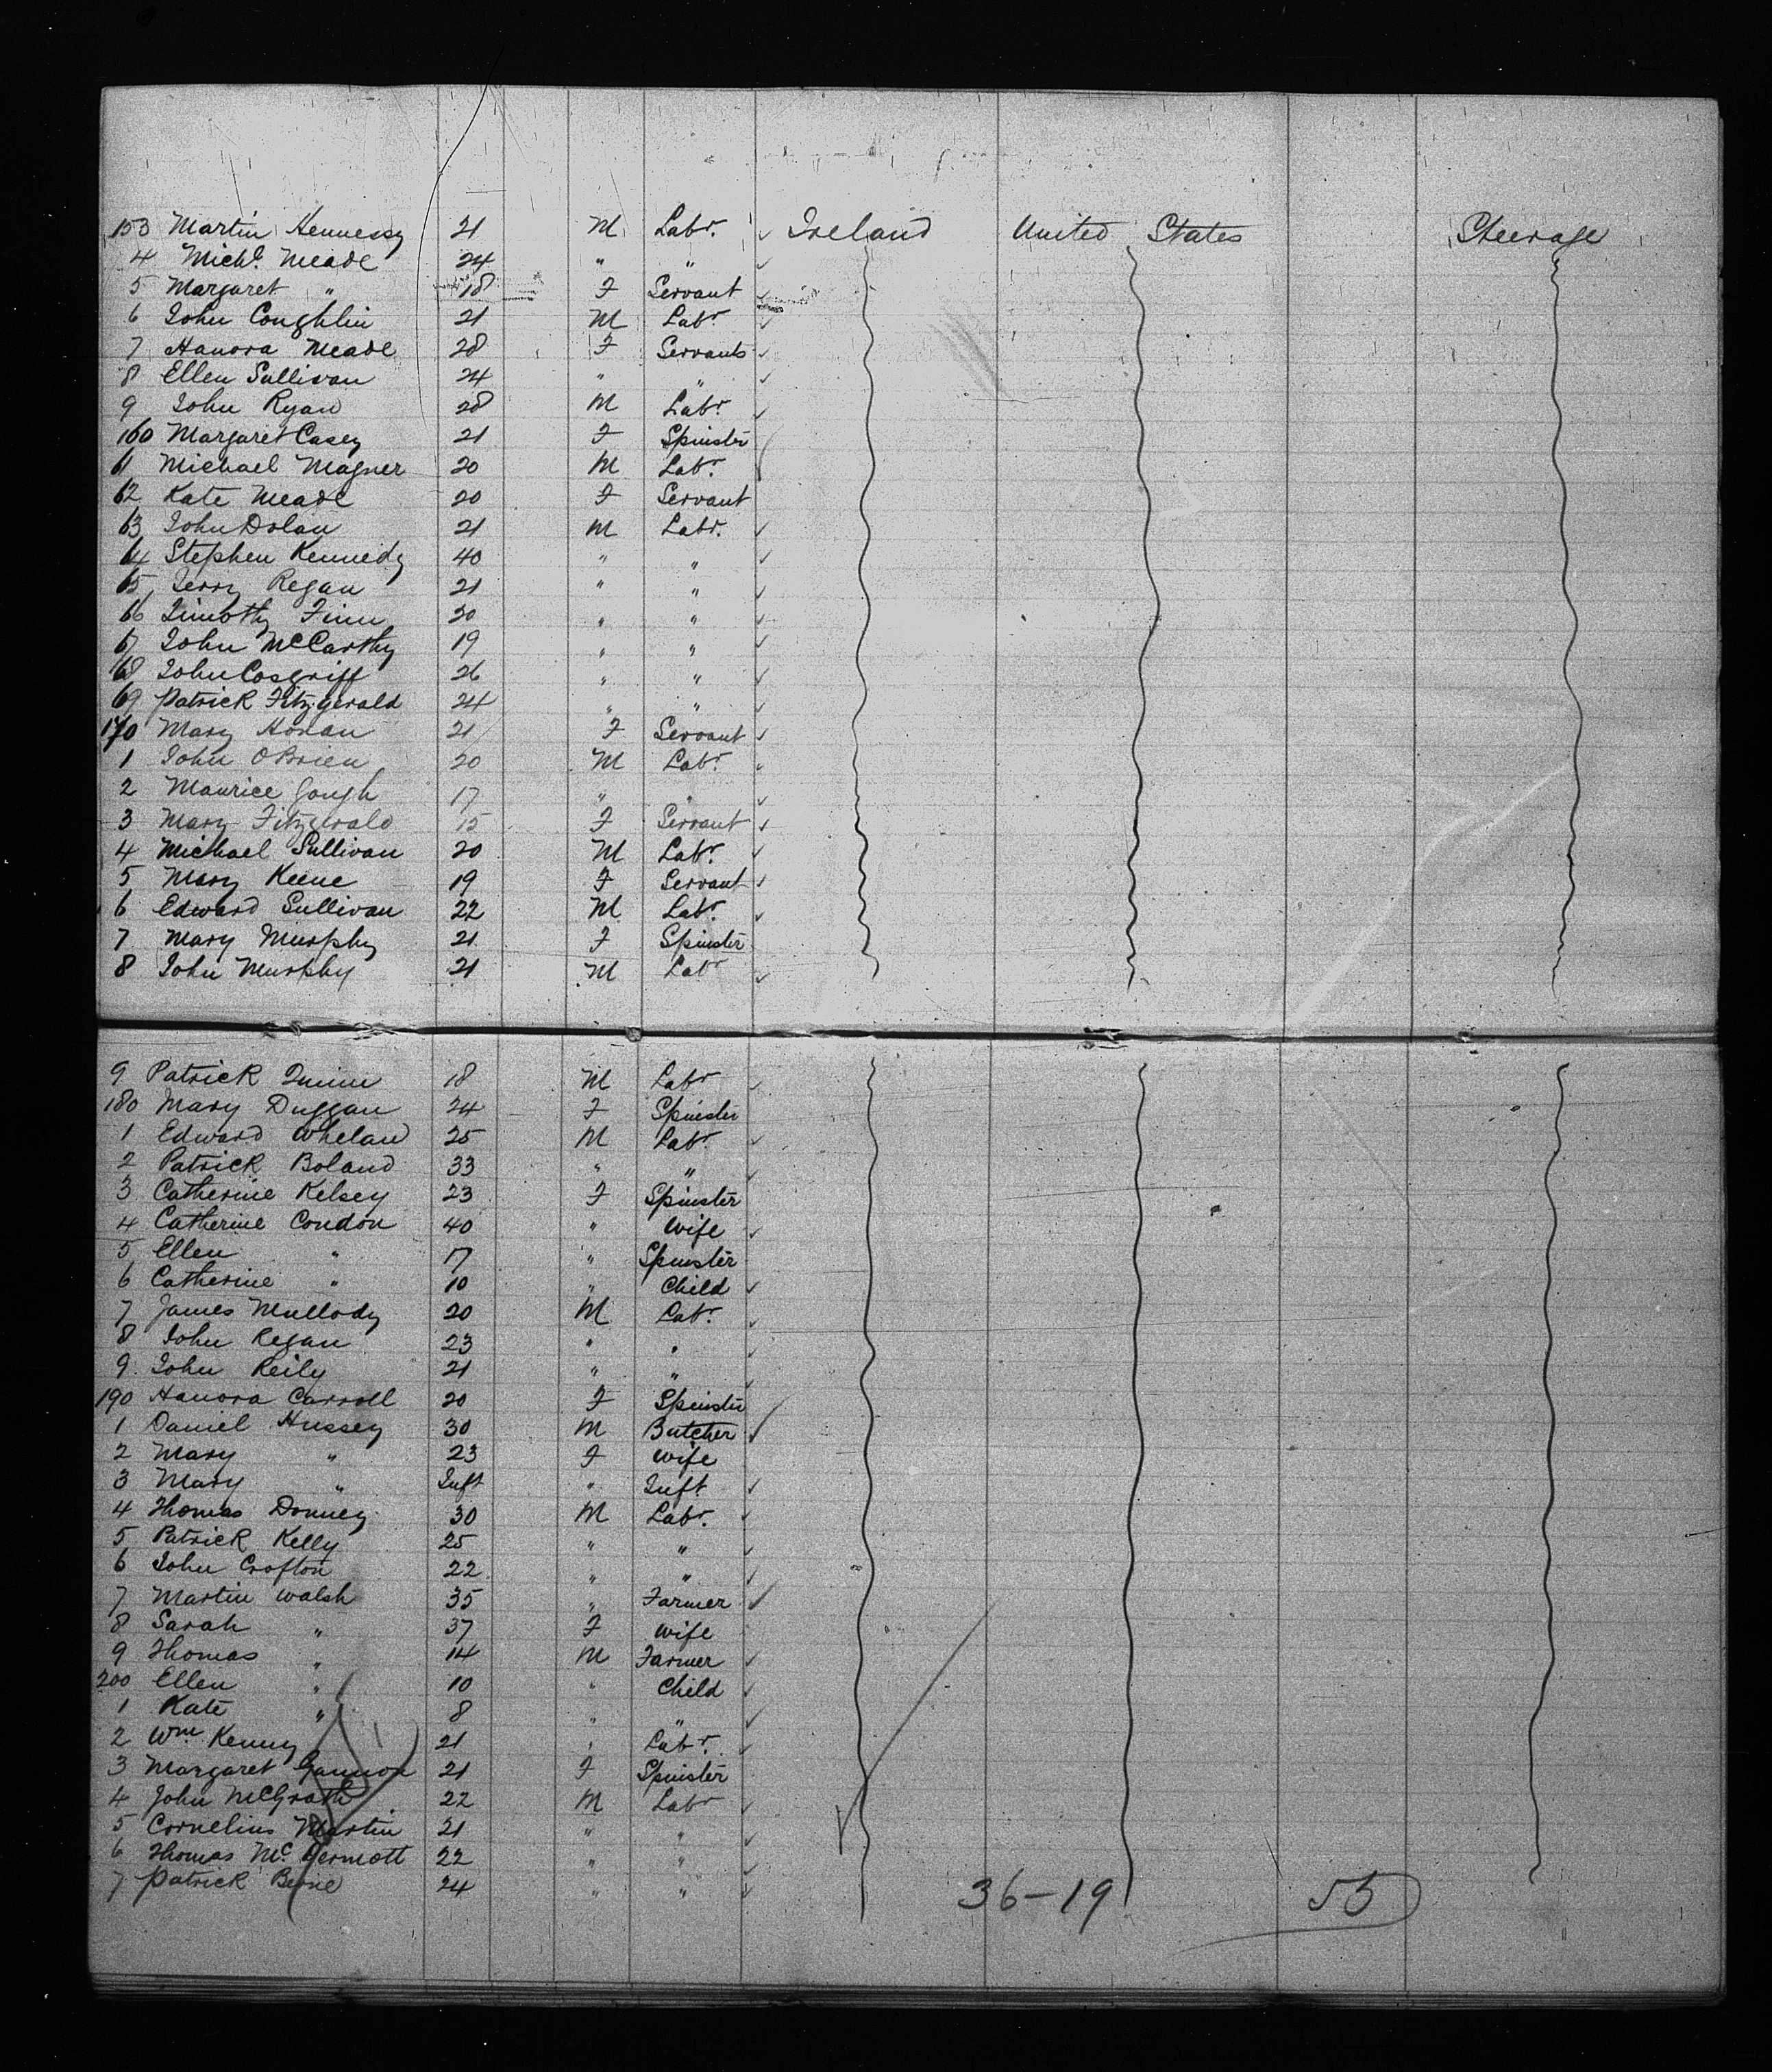 153 Martin Hennessy 21 M Labr. Ireland United States Steerage
4 Michl. Meade 24 " "
5 Margaret " 18 F Servant
6 John Coughlin 21 M Labr.
7 Hanora Meade 28 F Servants
8 Ellen Sullivan 24 " "
9 John Ryan 28 M Labr.
160 Margaret Casey 21 F Spinster
61 Michael Magner 20 M Labr.
62 Kate Meade 20 F Servant
63 John Dolan 21 M Labr.
64 Stephen Kennedy 40 " "
65 Jerry Regan 21 " "
66 Timothy Finn 20 " "
67 John McCarthy 19 " "
68 John Cosgriff 26 " "
69 Patrick Fitzgerald 24 " "
170 Mary Horan 21 F Servant
1 John OBrien 20 M Labr.
2 Maurice Gough 17 " "
3 Mary Fitzgerald 15 F Servant
4 Michael Sullivan 20 M Labr.
5 Mary Keene 19 F Servant
6 Edward Sullivan 22 M Labr.
7 Mary Murphy 21 F Spinster
8 John Murphy 21 M Labr
9 Patrick Quinn 18 M Labr
180 Mary Duggan 24 F Spinster
1 Edward Whelan 25 M Labr.
2 Patrick Boland 33 " "
3 Catherine Kelsey 23 F Spinster
4 Catherine Condon 40 " Wife
5 Ellen " 17 " Spinster
6 Catherine " 10 " Child
7 James Mullody 20 M Labr.
8 John Regan 23 " "
9 John Reily 21 " "
190 Hanora Carroll 20 F Spinster
1 Daniel Hussey 30 M Butcher
2 Mary " 23 F Wife
3 Mary " Inft " Inft.
4 Thomas Donney 30 M Labr.
5 Patrick Kelly 25 " "
6 John Crofton 22 " "
7 Martin Walsh 35 " Farmer
8 Sarah " 37 F Wife
9 Thomas " 14 M Farmer
200 Ellen " 10 " Child
1 Kate " 8 " "
2 Wm. Kenny 21 " Labr.
3 Margaret Gannon 21 F Spinster
4 John McGrath 22 M Labr
5 Cornelius Martin 21 " "
6 Thomas Mc Dermott 22 " "
7 Patrick Beirne 24 " "
36-19 55